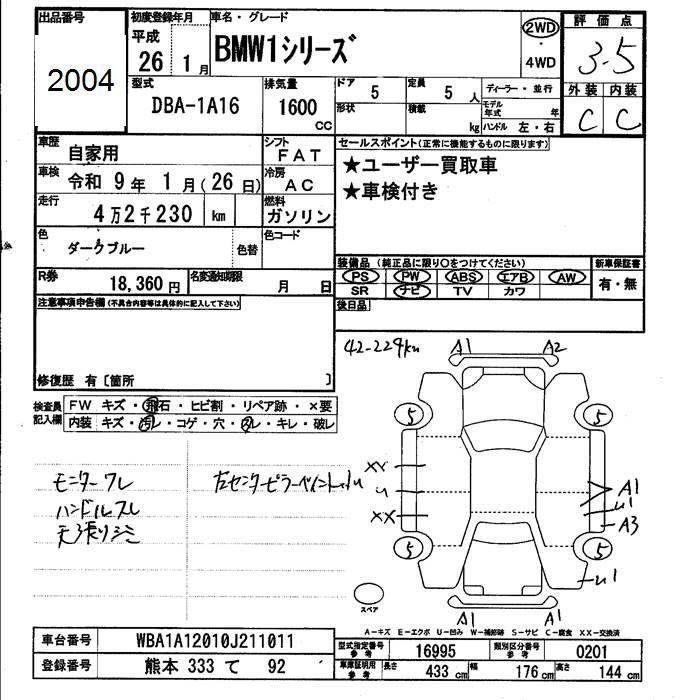 出品番号 初度登録年月 車名・グレード 2WD・4WD 評価点
2004 平成 26 1月 BMW1シリーズ 3.5
型式 排気量 ドア 定員 ディーラー・並行 外装 内装
DBA-1A16 1600 CC 5 5人 C C
形状 積載 kg モデル年式 年
ハンドル 左・右
車歴 自家用 シフト FAT セールスポイント(正常に機能するものに限ります)
車検 令和 9年 1月(26日) 冷房 AC ★ユーザー買取車
走行 4万2千230 km 燃料 ガソリン ★車検付き
色 ダークブルー 色替 色コード
装備品 (純正品に限り○をつけてください) 新車保証書
R券 18,360円 名変通知期限 月 日 PS PW ABS エアB AW 有・無
SR ナビ TV カワ
注意事項申告欄(不具合内容等は具体的に記入して下さい) 後日品
42-229km A1 A2
修復歴 有〔箇所 〕
検査員記入欄 FW キズ・飛石・ヒビ割・リペア跡・×要
内装 キズ・汚レ・コゲ・穴・スレ・キレ・破レ
5 5
モニターワレ 左センターピラーペイント
XX
ハンドルスレ
u A1
天張りシミ
XX u1
A3
5 5
u1
スペア
A1 A1
A-キズ E-エクボ U-凹み W-補修跡 S-サビ C-腐食 XX-交換済
車台番号 WBA1A12010J211011 型式指定番号 参考 16995 類別区分番号 参考 0201
登録番号 熊本 333 て 92 車庫証明用 参考 長さ 433 cm 幅 176 cm 高さ 144 cm